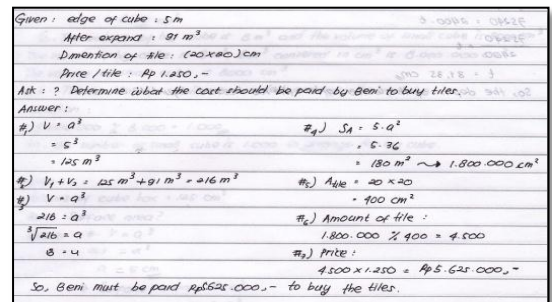 Given : edge of cube : 5 m
After expand : 91 m³
Dimention of tile : (20x20) cm
Price / tile : Rp 1.250,-
Ask : ? Determine what the cost should be paid by Beni to buy tiles.
Answer :
#1) V = a³
= 5³
= 125 m³
#2) V₁+V₂ = 125 m³ + 91 m³ = 216 m³
#3) V = a³
216 = a³
∛216 = a
6 = a
#4) SA = 5.a²
= 5.36
= 180 m² ⇝ 1.800.000 cm²
#5) Atile = 20 x 20
= 400 cm²
#6) Amount of tile :
1.800.000 % 400 = 4.500
#7) Price :
4.500 x 1.250 = Rp 5.625.000,-
So, Beni must be paid Rp5625.000,- to buy the tiles.